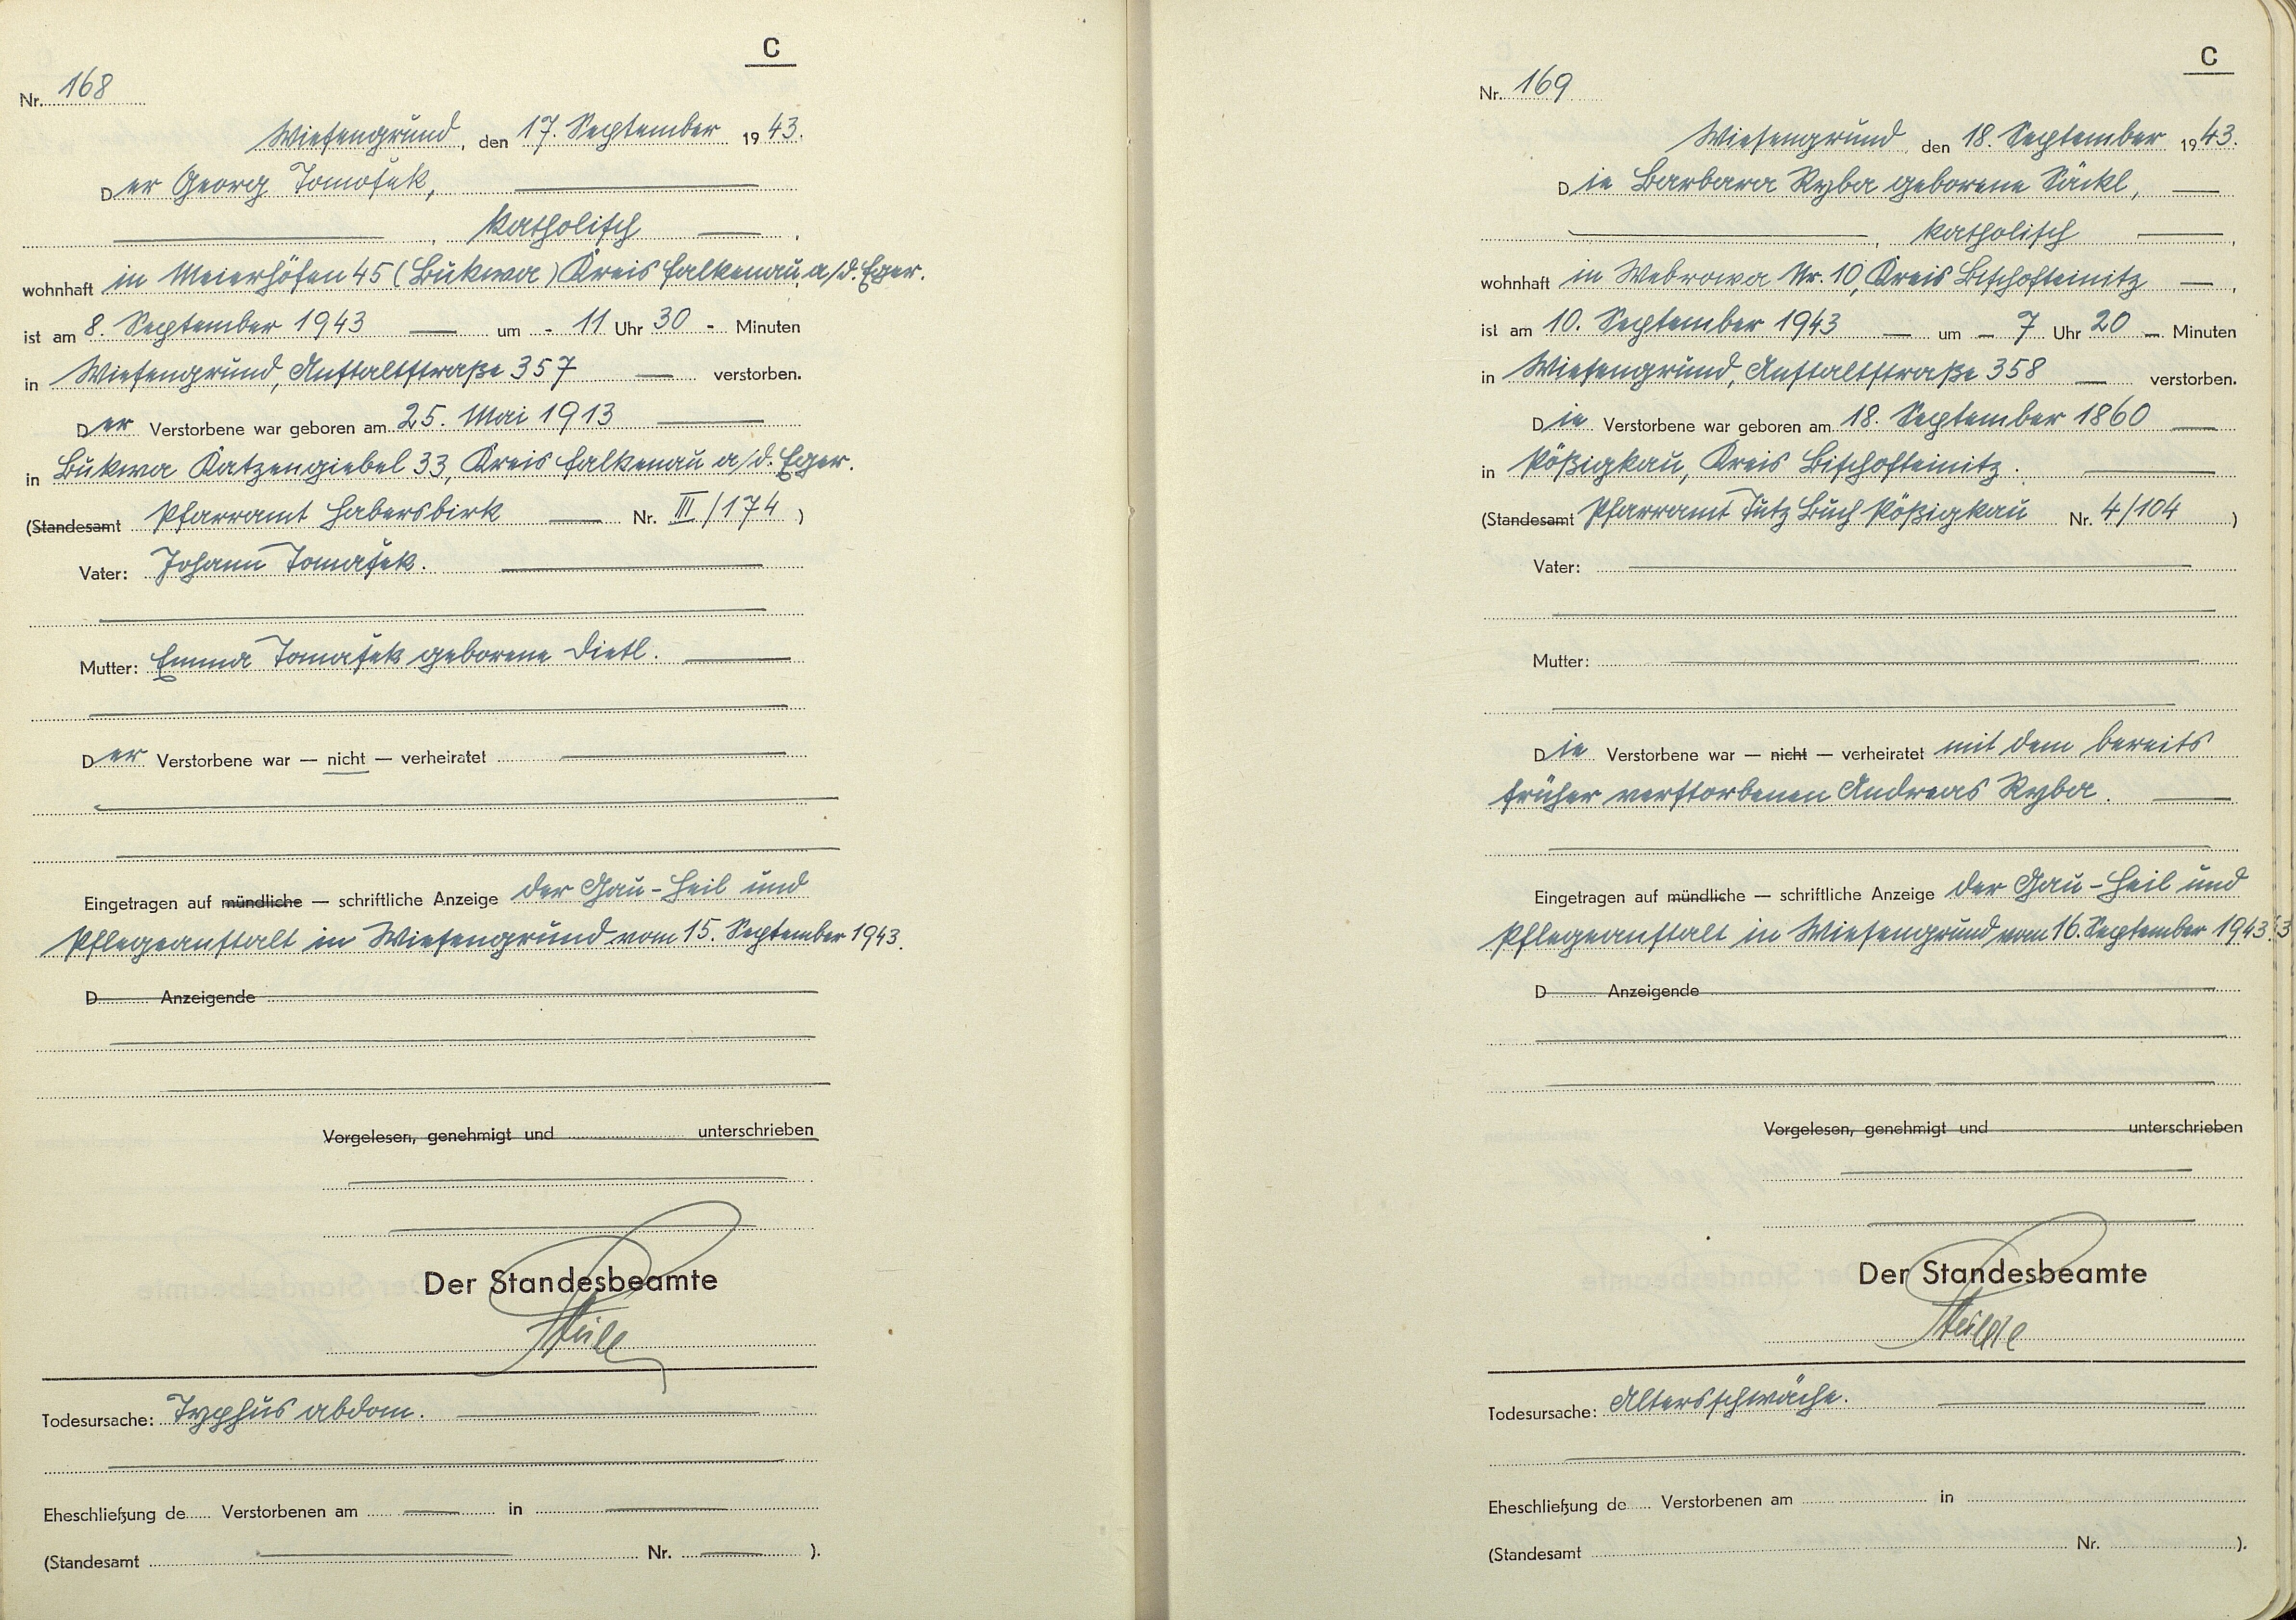 C
Nr. 168
Wiesengrund, den 17. September 1943.
Der Georg Tomašek,
katholisch,
wohnhaft in Meierhöfen 45 (Bukwa) Kreis Falkenau a/d. Eger.
ist am 8. September 1943 um - 11 Uhr 30 - Minuten
in Wiesengrund, Anstaltstraße 357 verstorben.
Der Verstorbene war geboren am 25. Mai 1913
in Bukwa Katzengiebel 33, Kreis Falkenau a/d. Eger.
(Standesamt Pfarramt Habersbirk Nr. III/174)
Vater: Johann Tomašek.
Mutter: Emma Tomašek geborene Dietl.
Der Verstorbene war — nicht — verheiratet
Eingetragen auf mündliche — schriftliche Anzeige der Gau-Heil und
Pflegeanstalt in Wiesengrund vom 15. September 1943.
D Anzeigende
Vorgelesen, genehmigt und unterschrieben
Der Standesbeamte
Todesursache: Typhus abdom.
Eheschließung de Verstorbenen am in
(Standesamt Nr. ).
C
Nr. 169
Wiesengrund, den 18. September 1943.
Die Barbara Ryba geborene Säckl,
katholisch,
wohnhaft in Webrowa Nr. 10, Kreis Bischofteinitz,
ist am 10. September 1943 um — 7 Uhr 20 — Minuten
in Wiesengrund, Anstaltstraße 358 verstorben.
Die Verstorbene war geboren am 18. September 1860
in Pößigkau, Kreis Bischofteinitz.
(Standesamt Pfarramt Tutz Buch Pößigkau Nr. 4/104)
Vater:
Mutter:
Die Verstorbene war — nicht — verheiratet mit dem bereits
früher verstorbenen Andreas Ryba.
Eingetragen auf mündliche — schriftliche Anzeige der Gau-Heil und
Pflegeanstalt in Wiesengrund vom 16. September 1943.
D Anzeigende
Vorgelesen, genehmigt und unterschrieben
Der Standesbeamte
Todesursache: Altersschwäche.
Eheschließung de Verstorbenen am in
(Standesamt Nr. ).